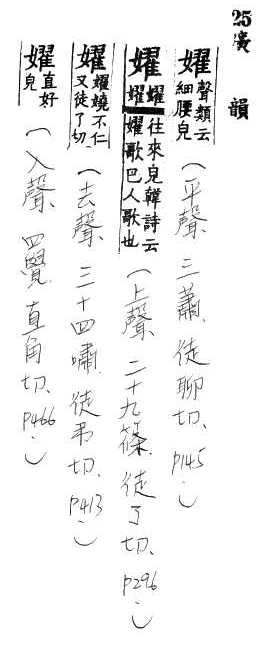 25 廣韻
嬥 聲類云細腰皃(平聲 三蕭、徒聊切、P145。)
嬥 嬥嬥往來皃韓詩云嬥歌巴人歌也(上聲 二十九篠、徒了切、P296。)
嬥 嬥嬈不仁又徒了切(去聲 三十四嘯、徒弔切、P413。)
嬥 直好皃(入聲 四覺 直角切、P466。)